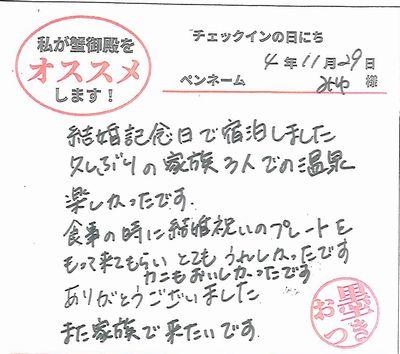 私が蟹御殿を
オススメ
します！
チェックインの日にち
4年11月29日
ペンネーム 様
結婚記念日で宿泊しました
久しぶりの家族3人での温泉
楽しかったです。
食事の時に結婚祝いのプレートを
もって来てもらい とても うれしかったです
カニもおいしかったです
ありがとうございました
また家族で来たいです。
お墨つき